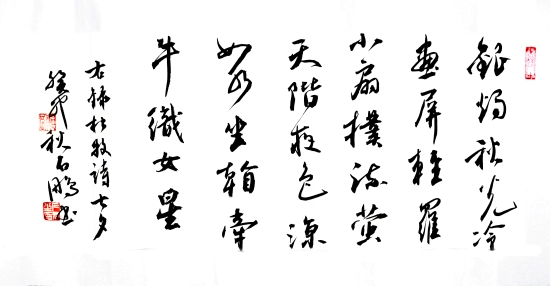 銀燭秋光冷
畫屏輕羅
小扇撲流螢
天階夜色涼
如水坐看牽
牛織女星
右錄杜牧詩七夕
秋石鵬